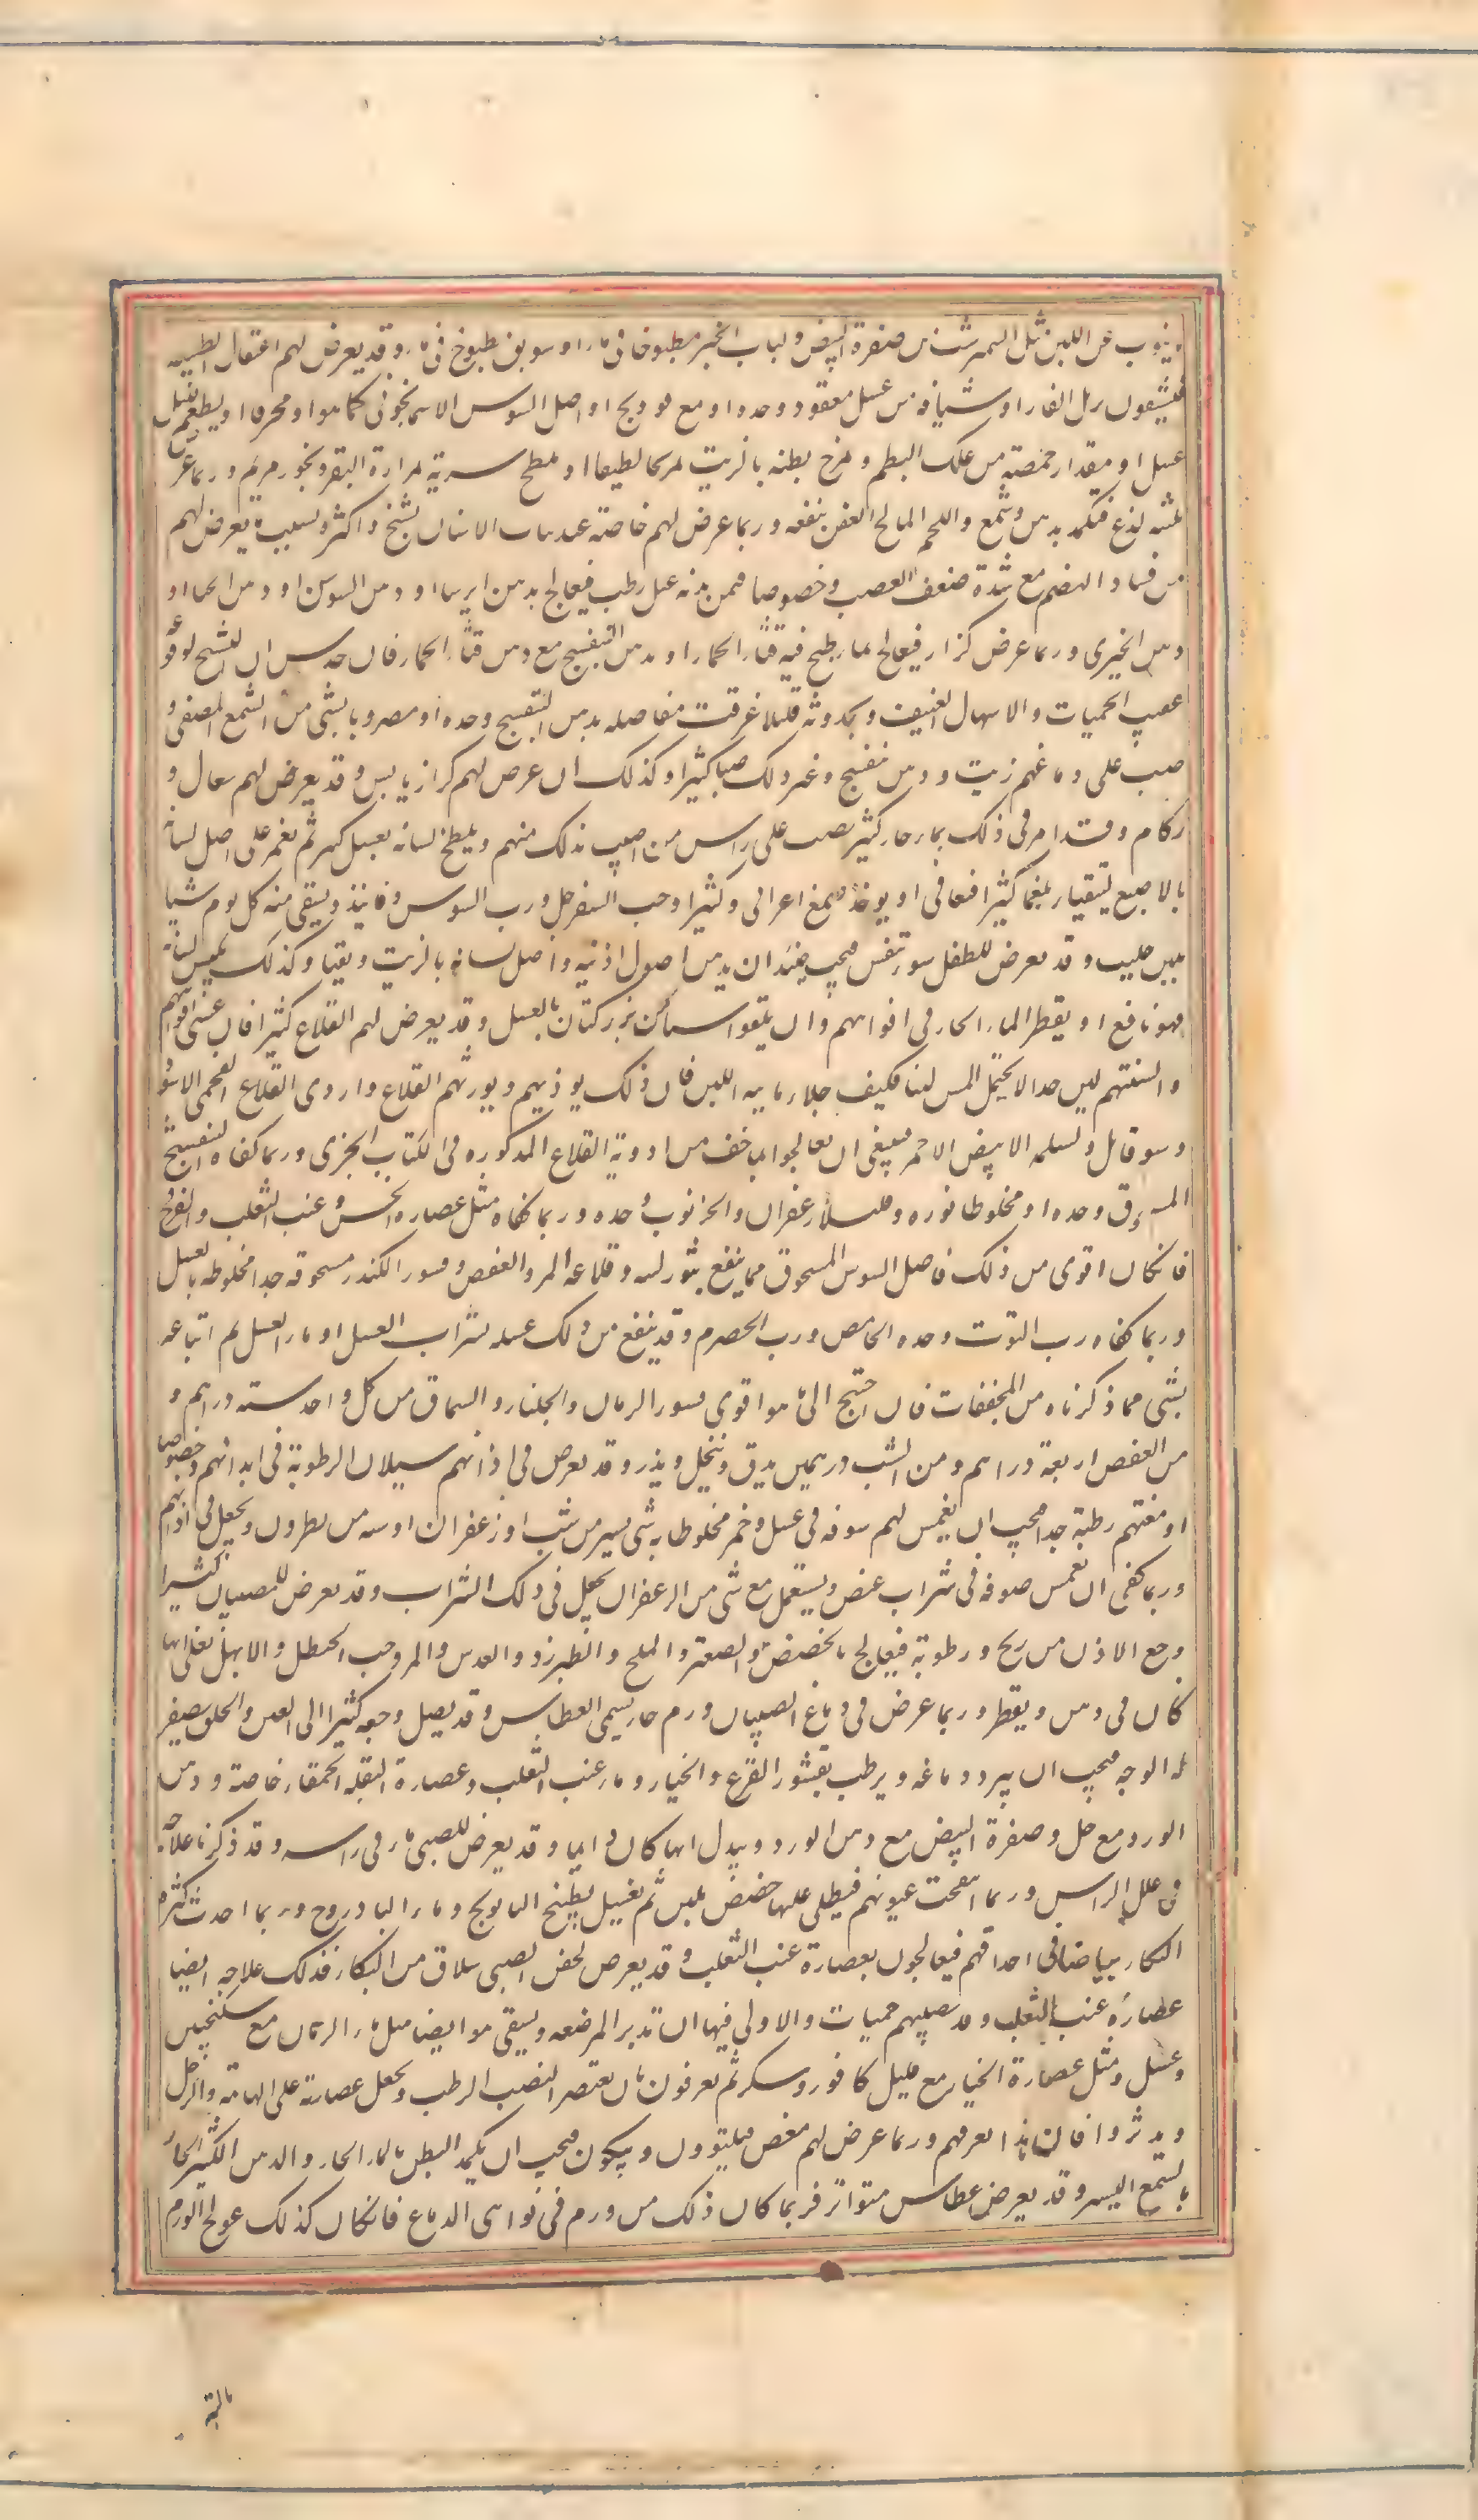 ينوب عن اللبن مثل النيمرشت من صفرة البيض ولباب الخبز مطبوخا فى ماء او سويق مطبوخ فى ماء وقد يعرض لهم اعتقال الطبيعه
فيشيفون زبل الفار او شيافه من عسل معقود وحده او مع فودنج او اصل السوسن الاسمانجونى كما هو او محرقا او يطعم قليل
عسل او مقدار حمصة من علك البطم ويمرخ بطنه بالزيت تمريخا لطيفا او يلطخ سرته بمرارة البقر وبخور مريم وربما عرض
بلثته لذع فيكمد بدهن وشمع واللحم المالح العفن ينفعه وربما عرض لهم خاصة عند نبات الاسنان تشنج واكثره بسبب ما يعرض لهم
من فساد الهضم مع شدة ضعف العصب وخصوصا فيمن بدنه عبل رطب فيعالج بدهن ايرسا او دهن السوسن او دهن الحنا او
دهن الخيرى وربما عرض كزاز فيعالج بماء طبخ فيه قثاء الحمار او بدهن البنفسج مع دهن قثاء الحمار فان حدس ان التشنج لوقوعه
عقيب الحميات والاسهال العنيف وبحدوثه قليلا قليلا غرقت مفاصله بدهن البنفسج وحده او مضروبا بشى من الشمع المصفى و
صب على دماغهم زيت ودهن بنفسج وغير ذلك صبا كثيرا وكذلك ان عرض لهم كزاز يابس وقد يعرض لهم سعال و
زكام وقد امر فى ذلك بماء حار كثير يصب على راس من اصيب بذلك منهم ويلطخ لسانه بعسل كثير ثم يغمز على اصل لسانه
بالاصبع ليتقيا بلغما كثيرا فيعافى او يوخذ صمغ اعرابى وكثيرا وحب السفرجل ورب السوس وفانيذ ويسقى منه كل يوم شيا
بلبن حليب وقد يعرض للطفل سوء تنفس فيجب حينئذ ان يدهن اصول اذنيه واصل لسانه بالزيت ويقيا وكذلك يكبس لسانه
فهو نافع او يقطر الماء الحار فى افواههم وان يلعقوا شيا من بزر كتان بالعسل وقد يعرض لهم القلاع كثيرا فان غشاء افواههم
والسنتهم لين جدا لا يحتمل اللمس لينا فكيف جلاء مائيه اللبن فان ذلك يوذيهم ويورثهم القلاع واردى القلاع الفحمى الاسود
وهو قاتل واسلمه الابيض الاحمر فينبغى ان يعالجوا بما خف من ادوية القلاع المذكوره فى الكتاب الجزى وربما كفاه البنفسج
المسحوق وحده او مخلوطا بورد وقليل زعفران والخرنوب وحده وربما كفاه مثل عصارة الخس وعنب الثعلب والفرفخ
فان كان اقوى من ذلك فاصل السوس المسحوق مما ينفع بثور لثته وقلاعه المر والعفص وقشور الكندر مسحوقه جدا مخلوطه بالعسل
وربما كفاه رب التوت وحده الحامض ورب الحصرم وقد ينفع من ذلك غسله بشراب العسل او ماء العسل ثم اتباعه
بشى مما ذكرناه من المجففات فان احتيج الى ما هو اقوى فقشور الرمان والجلنار والسماق من كل واحد سته دراهم و
من العفص اربعة دراهم ومن الشب درهمين يدق وينخل ويذر وقد يعرض فى اذانهم سيلان الرطوبة فان ابدانهم وخصوصا
ادمغتهم رطبة جدا فيجب ان يغمس لهم صوفه فى عسل وخمر مخلوطا به شى يسير من شب او زعفران او شمه من نطرون ويجعل فى اذانهم
وربما كفى ان تغمس صوفه فى شراب عفص ويستعمل مع شى من الزعفران يجعل فى ذلك الشراب وقد يعرض للصبيان كثيرا
وجع الاذن من ريح ورطوبة فيعالج بالحضض والصعتر والملح والطبرزد والعدس والمر وحب الحنظل والابهل يغلى ايها
كان فى دهن ويقطر وربما عرض فى دماغ الصبيان ورم حار يسمى العطاس وقد يصل وجعه كثيرا الى العين والحلق يصفر
له الوجه فيجب ان يبرد دماغه ويرطب بقشور القرع والخيار وماء عنب الثعلب وعصارة البقلة الحمقاء خاصة ودهن
الورد مع خل وصفرة البيض مع دهن الورد ويبدل ايها كان دايما وقد يعرض للصبى ماء فى راسه وقد ذكرنا علاجه
فى علل الراس وربما انتفخت عيونهم فيطلى عليها حضض بلبن ثم تغسل بطبيخ البابونج وماء الباذروج وربما احدث كثرة
البكاء بياضا فى احداقهم فيعالجون بعصارة عنب الثعلب وقد يعرض لجفن الصبى سلاق من البكاء فذلك علاجه ايضا
عصارة عنب الثعلب وقد تصيبهم حميات والاولى فيها ان تدبر المرضعه ويسقى هو ايضا مثل ماء الرمان مع سكنجبين
وعسل ومثل عصارة الخيار مع قليل كافور وسكر ثم يعرقون بان يعتصر القصب الرطب ويجعل عصارته على الهامة والرجل
ويدثروا فان هذا يعرقهم وربما عرض لهم مغص فيلتوون ويبكون فيجب ان يكمد البطن بالماء الحار والدهن الكثير الحار
بالشمع اليسير وقد يعرض عطاس متواتر فربما كان ذلك من ورم فى نواحى الدماغ فان كان كذلك عولج الورم